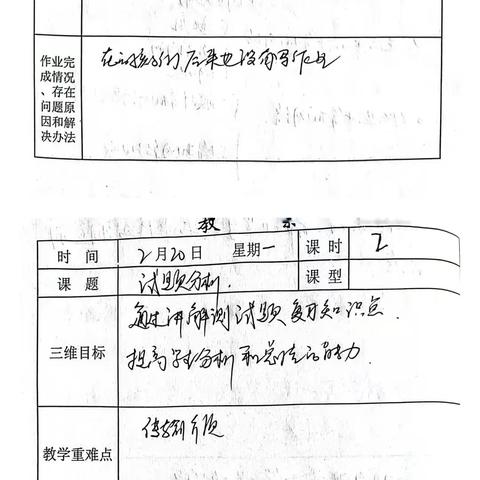 作业完
成情况
、存在
问题原
因和解
决办法
后果也没有写作业
教 案
时 间 2月20日 星期一 课 时 2
课 题 试题分析. 课 型
三维目标
通过讲解测试题复习知识点.
提高学生分析和总结的能力
教学重难点